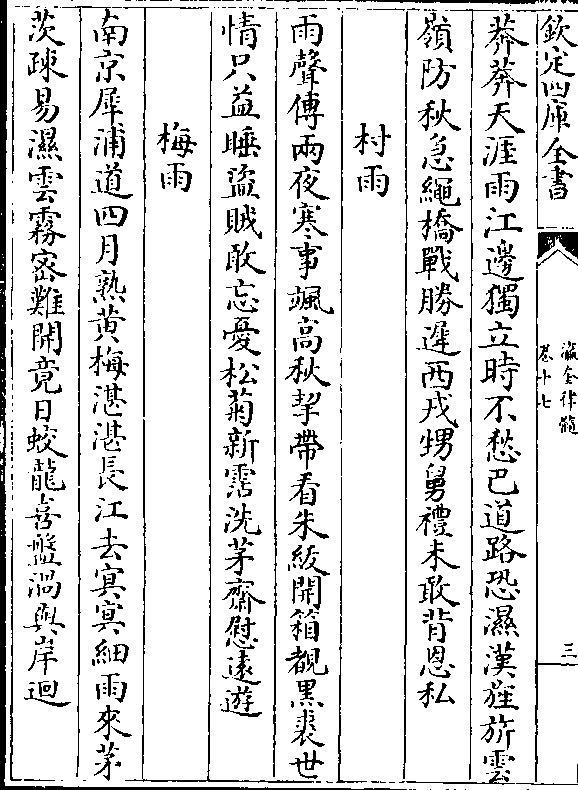 欽定四庫全書
瀛奎律髓
卷十七
三
莽莽天涯雨江邊獨立時不愁巴道路恐濕漢旌旂雲
嶺防秋急繩橋戰勝遲西戎甥舅禮未敢背恩私
村雨
雨聲傳兩夜寒事颯高秋挈帶看朱紱開箱覩黒裘世
情只益睡盜賊敢忘憂松菊新霑洗茅齋慰逺遊
梅雨
南京犀浦道四月熟黄梅湛湛長江去㝠㝠細雨來茅
茨疎易濕雲霧宻難開竟日蛟龍喜盤渦與岸迴